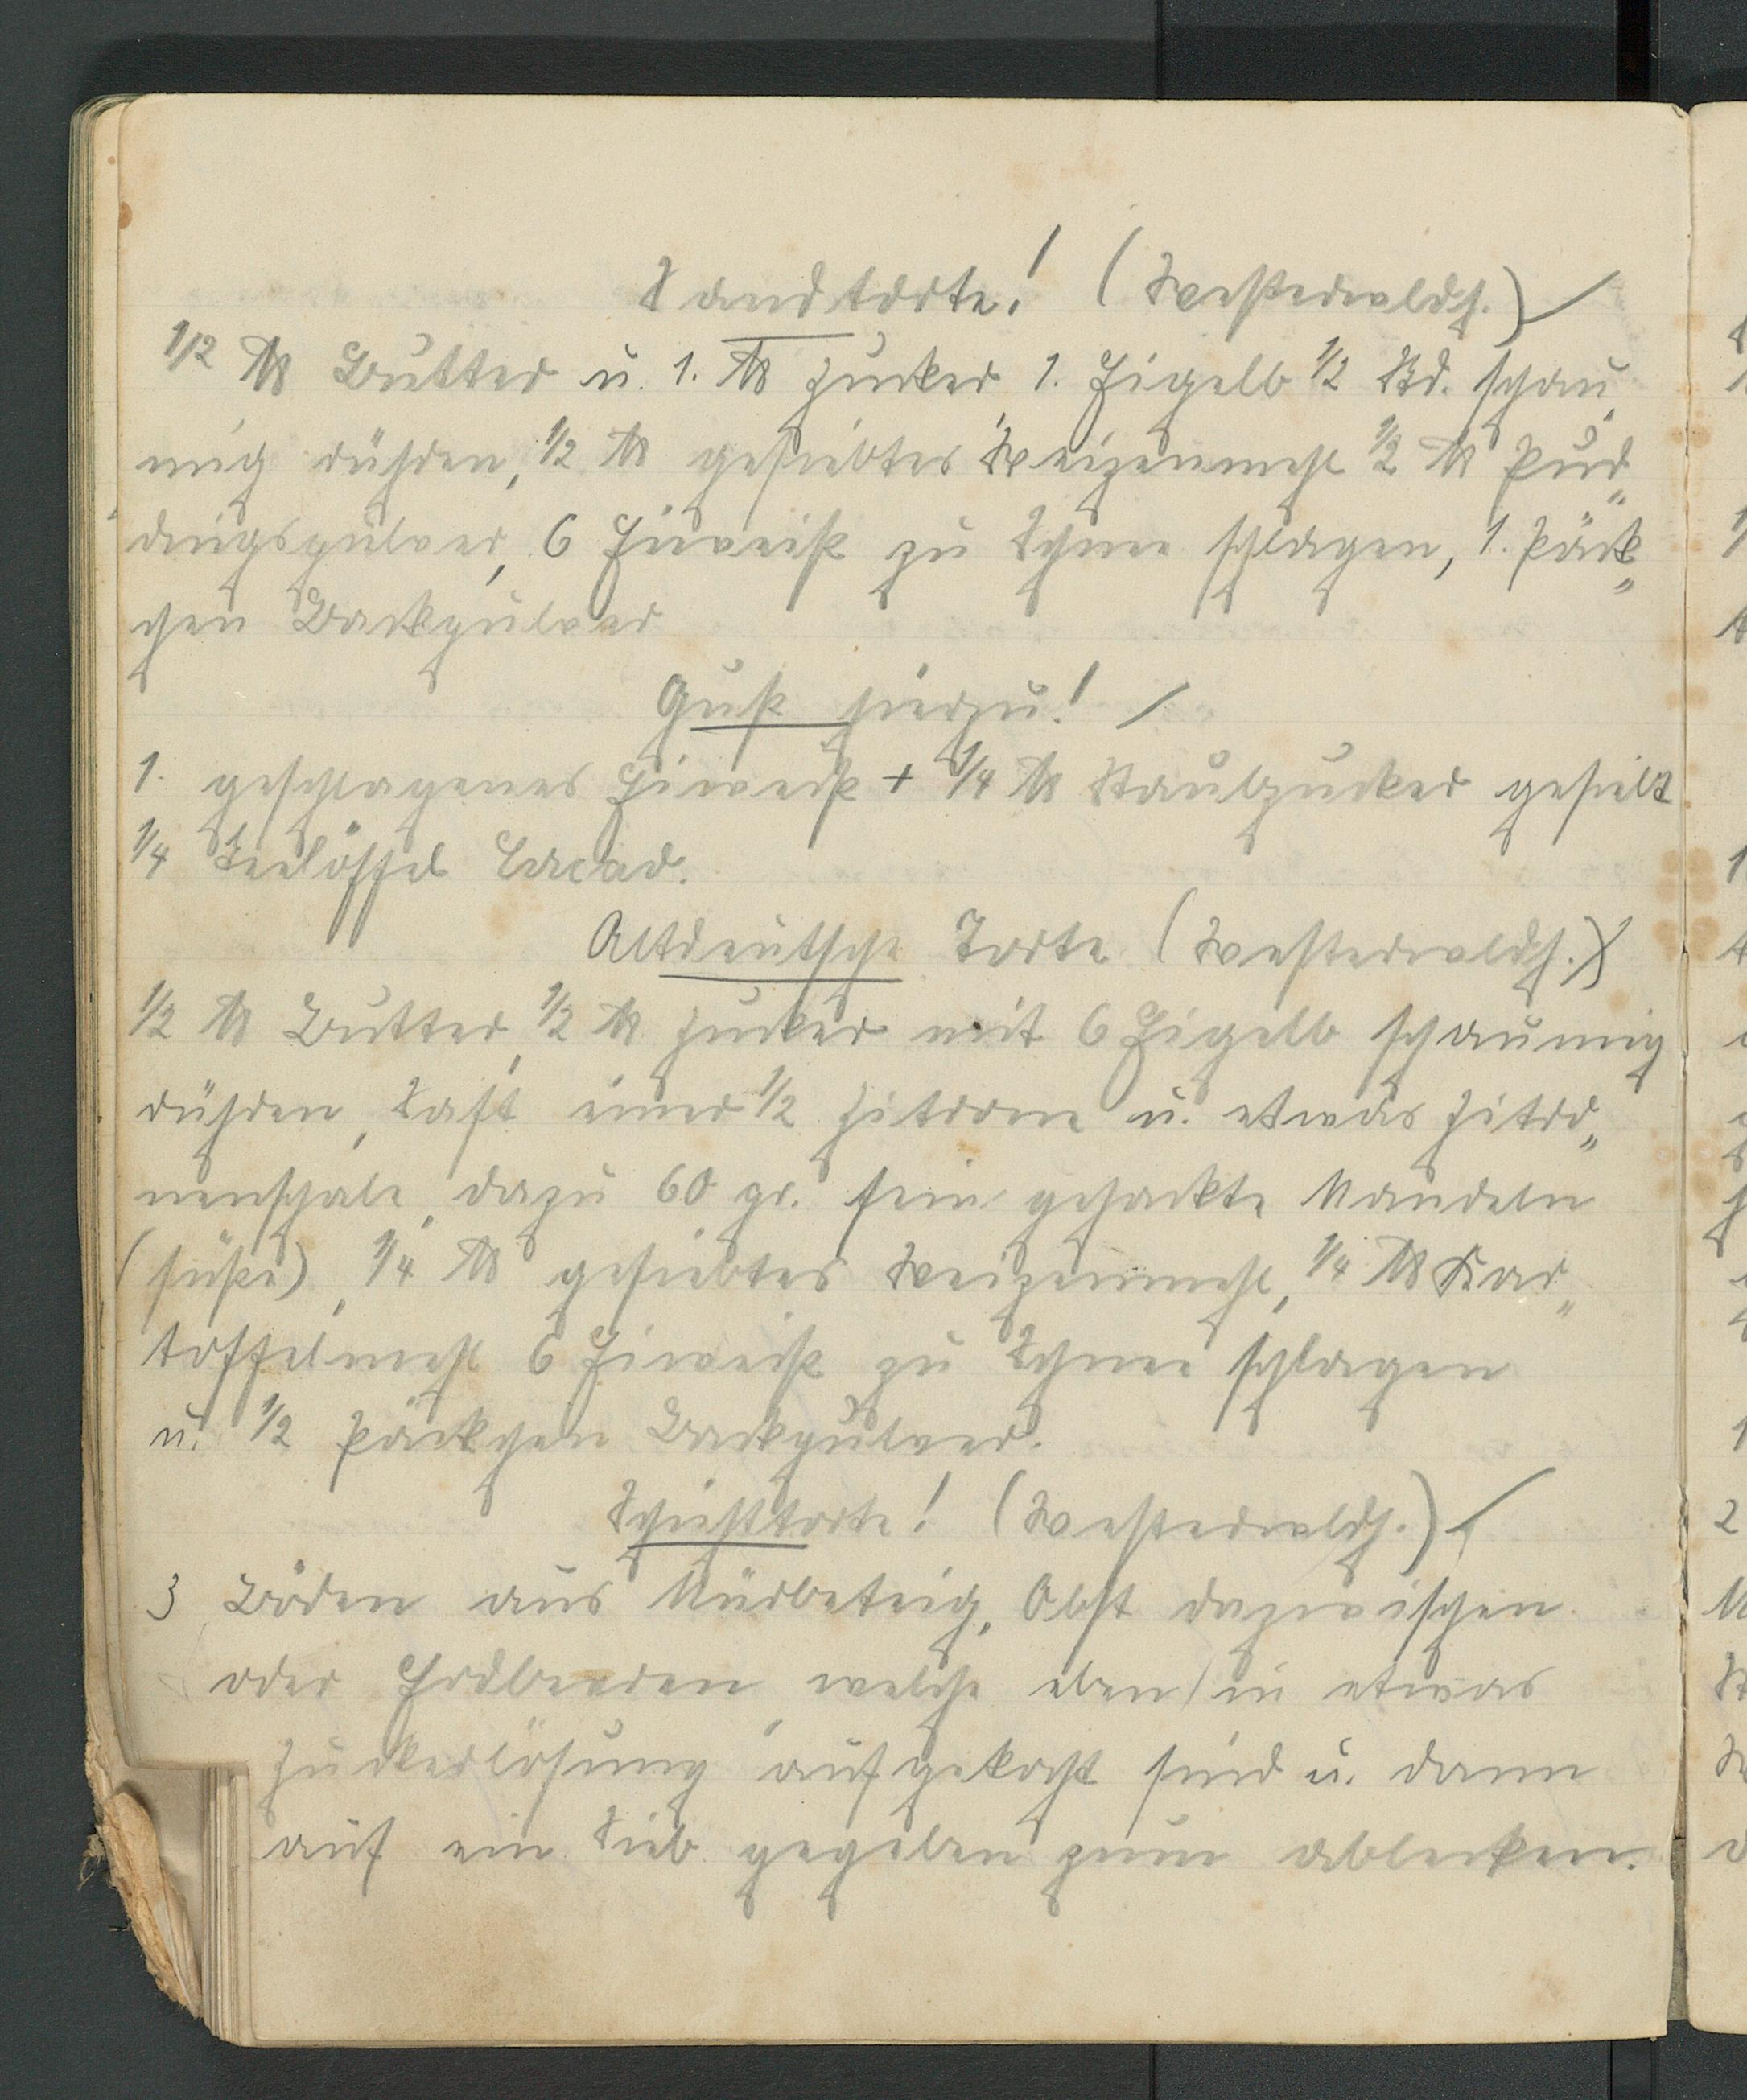 Sandtorte! (Westerwaldh.)
1/2 ℔ Butter u. 1. ℔ Zucker 1. Eigelb 1/2 Std. schau„
mig rühren, 1/2 ℔ gesiebtes Weizenmehl 1/2 ℔ Pud„
dingspulver, 6 Eiweiß zu Schnee schlagen, 1. Päck„
chen Backpulver
Guß hierzu!
1. geschlagenes Eiweiß + 1/4 ℔ Staubzucker gesiebt
1/4 Teelöffel Cacao.
Altdeutsche Torte (Westerwaldh.)
1/2 ℔ Butter, 1/2 ℔ Zucker mit 6 Eigelb schaumig
rühren, Saft einer 1/2 Zitrone u. etwas Zitro„
nenschale, dazu 60 gr. fein gehackte Mandeln
(süße), 1/4 ℔ gesiebtes Weizenmehl, 1/4 ℔ Kar„
toffelmehl 6 Eiweiß zu Schnee schlagen
u. 1/2 Päckchen Backpulver.
Schichttorte! (Westerwaldh.)
3 Böden aus Mürbeteig, Obst dazwischen
oder Erdbeeren, welche eben in etwas
Zuckerlösung aufgekocht sind u. dann
auf ein Sieb gegeben zum